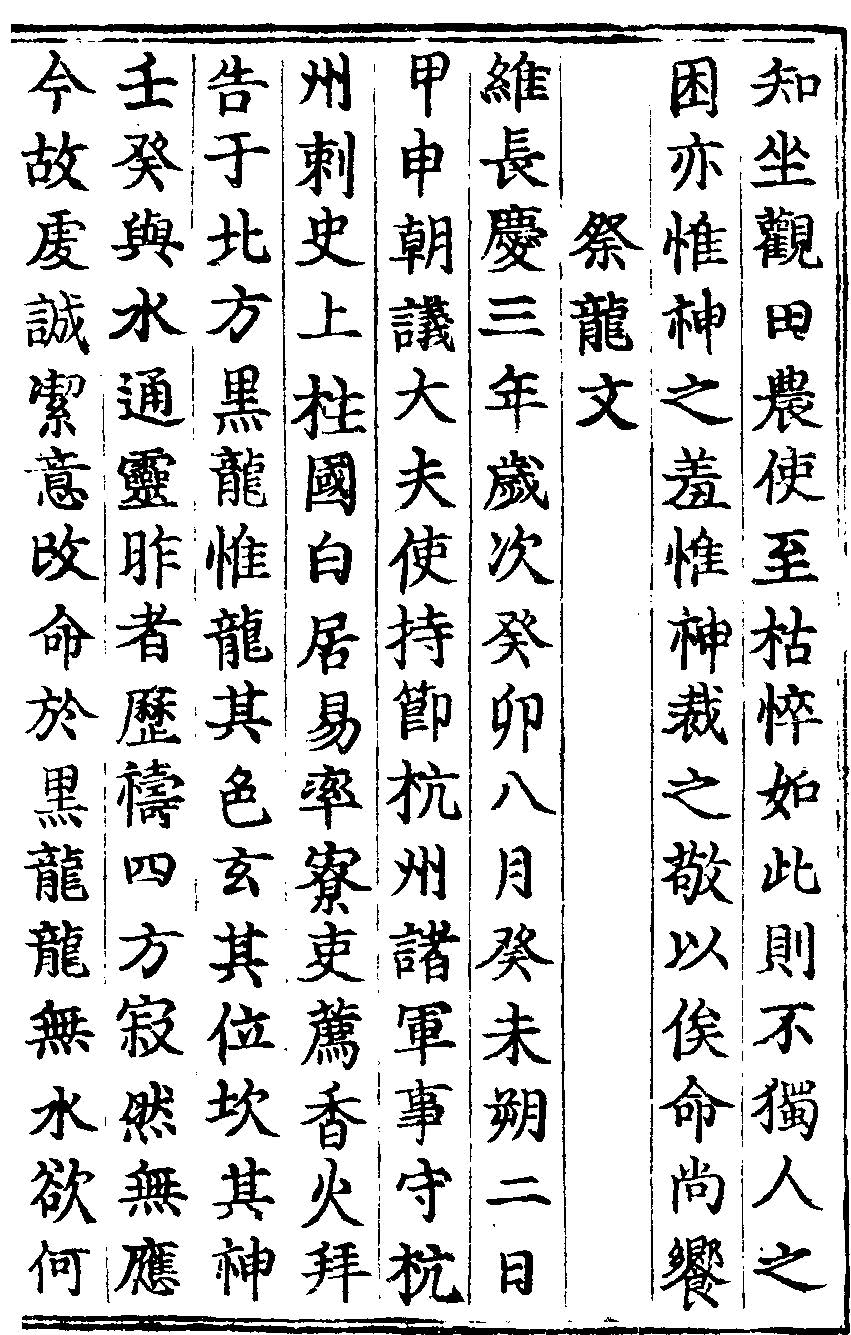 知坐觀田農使至枯悴如此則不獨人之
困亦惟神之羞惟神裁之敬以俟命尚饗
祭龍文
維長慶三年歲次癸卯八月癸未朔二日
甲申朝議大夫使持節杭州諸軍事守杭
州刺史上柱國白居易率寮吏薦香火拜
告于北方黑龍惟龍其色玄其位坎其神
壬癸與水通靈昨者歷禱四方寂然無應
今故虔誠潔意改命於黑龍龍無水欲何